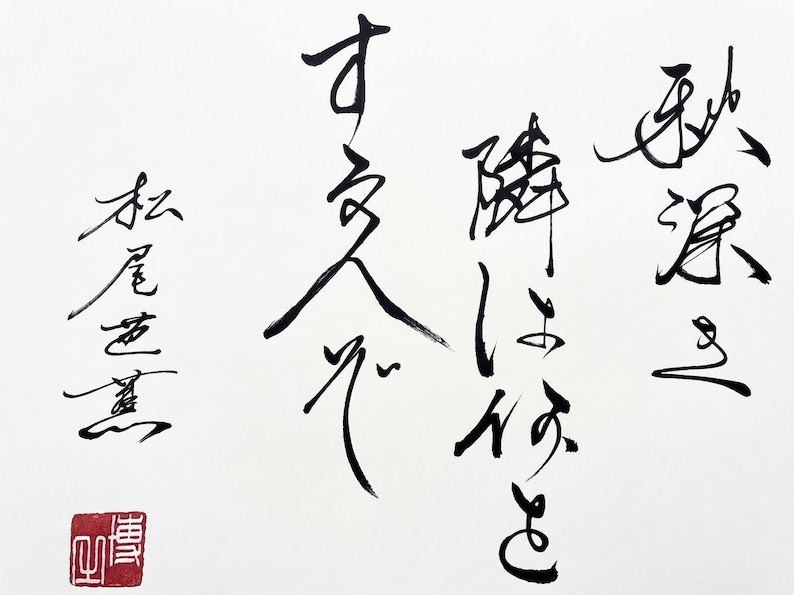 秋深き
隣は何を
する人ぞ
松尾芭蕉